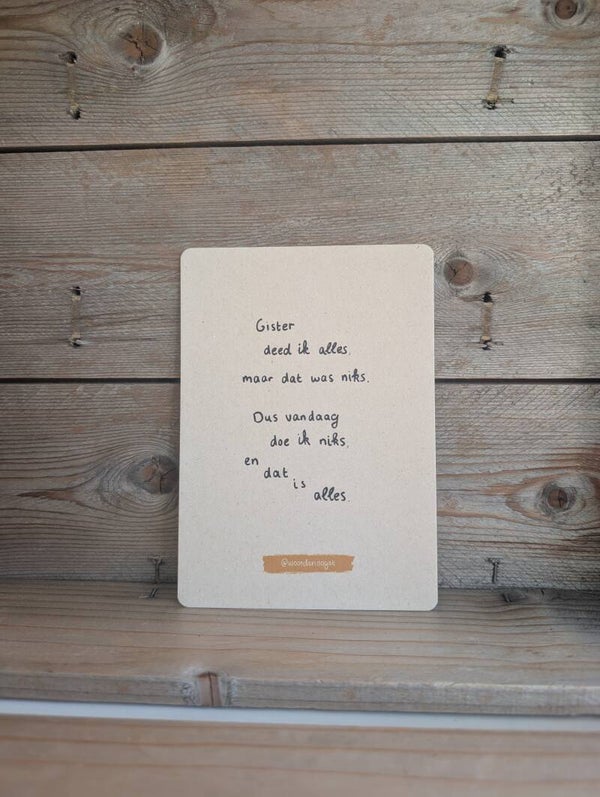 Gister
deed ik alles,
maar dat was niks.
Dus vandaag
doe ik niks,
en
dat
is
alles.